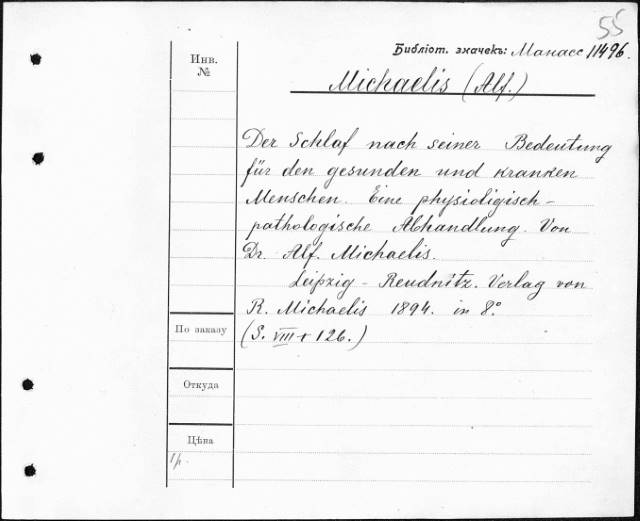 55
Библіот. значекъ: Манасс 11496.
Инв.
№
Michaelis (Alf.)
Der Schlaf nach seiner Bedeutung
für den gesunden und kranken
Menschen. Eine physioligisch-
pathologische Abhandlung. Von
Dr. Alf. Michaelis.
Leipzig - Reudnitz. Verlag von
R. Michaelis 1894. in 8°.
(S. VIII + 126.)
По заказу
Откуда
Цѣна
1р.